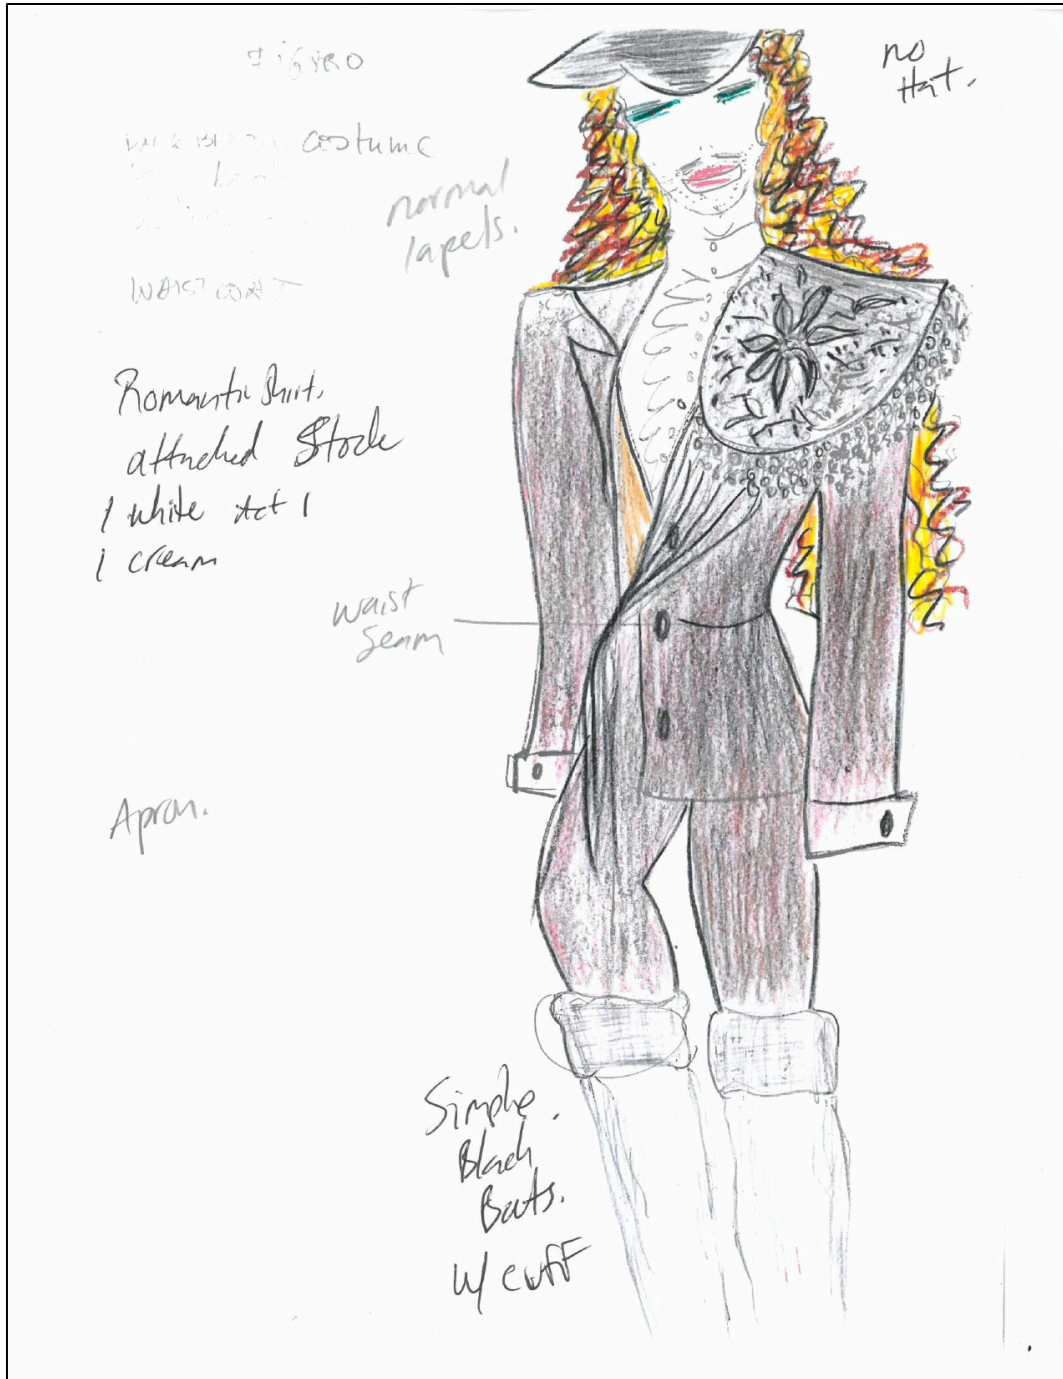 Figero
no
Hat.
costume
normal
lapels.
WAISTCOAT
Romantic Shirt,
attached Stock
1 white Act 1
1 cream
waist
Seam
Apron.
Simple.
Black
Boots.
w/ cuff